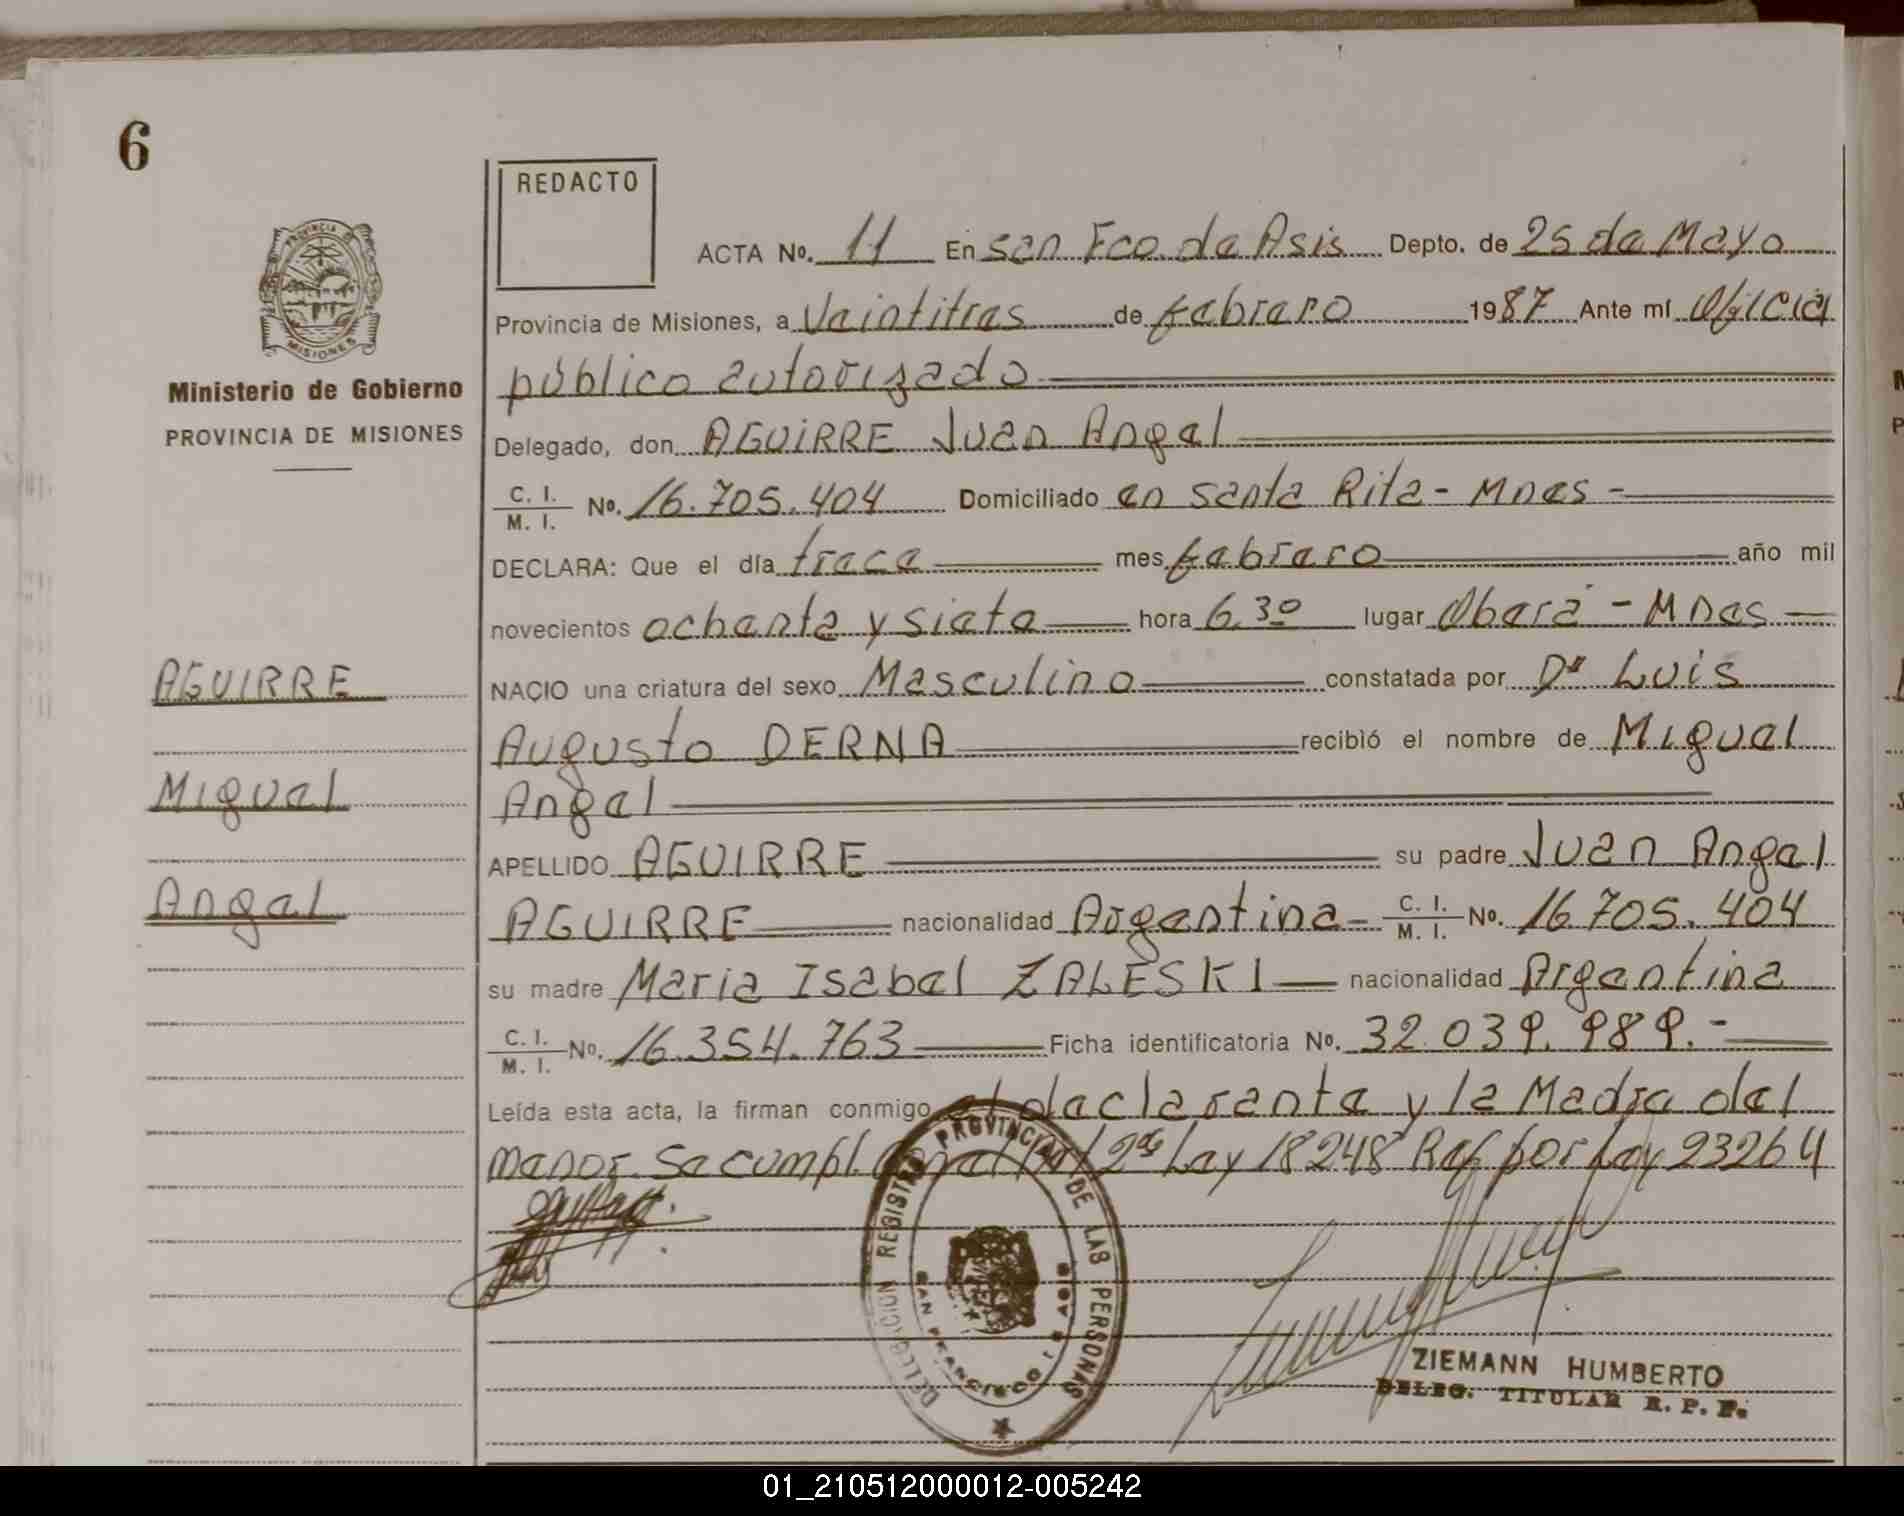 6
REDACTO
ACTA No. 11 En San Fco. de Asis Depto. de 25 de Mayo
Provincia de Misiones, a Veintitres de febrero 1987 Ante mí Oficial
público autorizado
PROVINCIA DE
MISIONES
Ministerio de Gobierno
PROVINCIA DE MISIONES
Delegado, don AGUIRRE Juan Angel
C. I.
M. I. No. 16.705.404 Domiciliado en Santa Rita - Mnes -
DECLARA: Que el día trece mes febrero año mil
novecientos ochenta y siete hora 6.30 lugar Oberá - Mnes -
AGUIRRE
NACIO una criatura del sexo Masculino constatada por Dr Luis
Augusto DERNA recibió el nombre de Miguel
Miguel
Angel
APELLIDO AGUIRRE su padre Juan Angel
Angel
AGUIRRE nacionalidad Argentina - C. I.
M. I. No. 16.705.404
su madre Maria Isabel ZALESKI nacionalidad Argentina
C. I.
M. I. No. 16.354.763 Ficha identificatoria No. 32.039.989.-
Leída esta acta, la firman conmigo el declarante y la Madre del
menor. Se cumpl. 2do Ley 18248 Ref por Ley 23264
DELEGACION REGISTRO PROVINCIAL DE LAS PERSONAS
SAN FRANCISCO
ZIEMANN HUMBERTO
DELEG. TITULAR R. P. P.
01_210512000012-005242